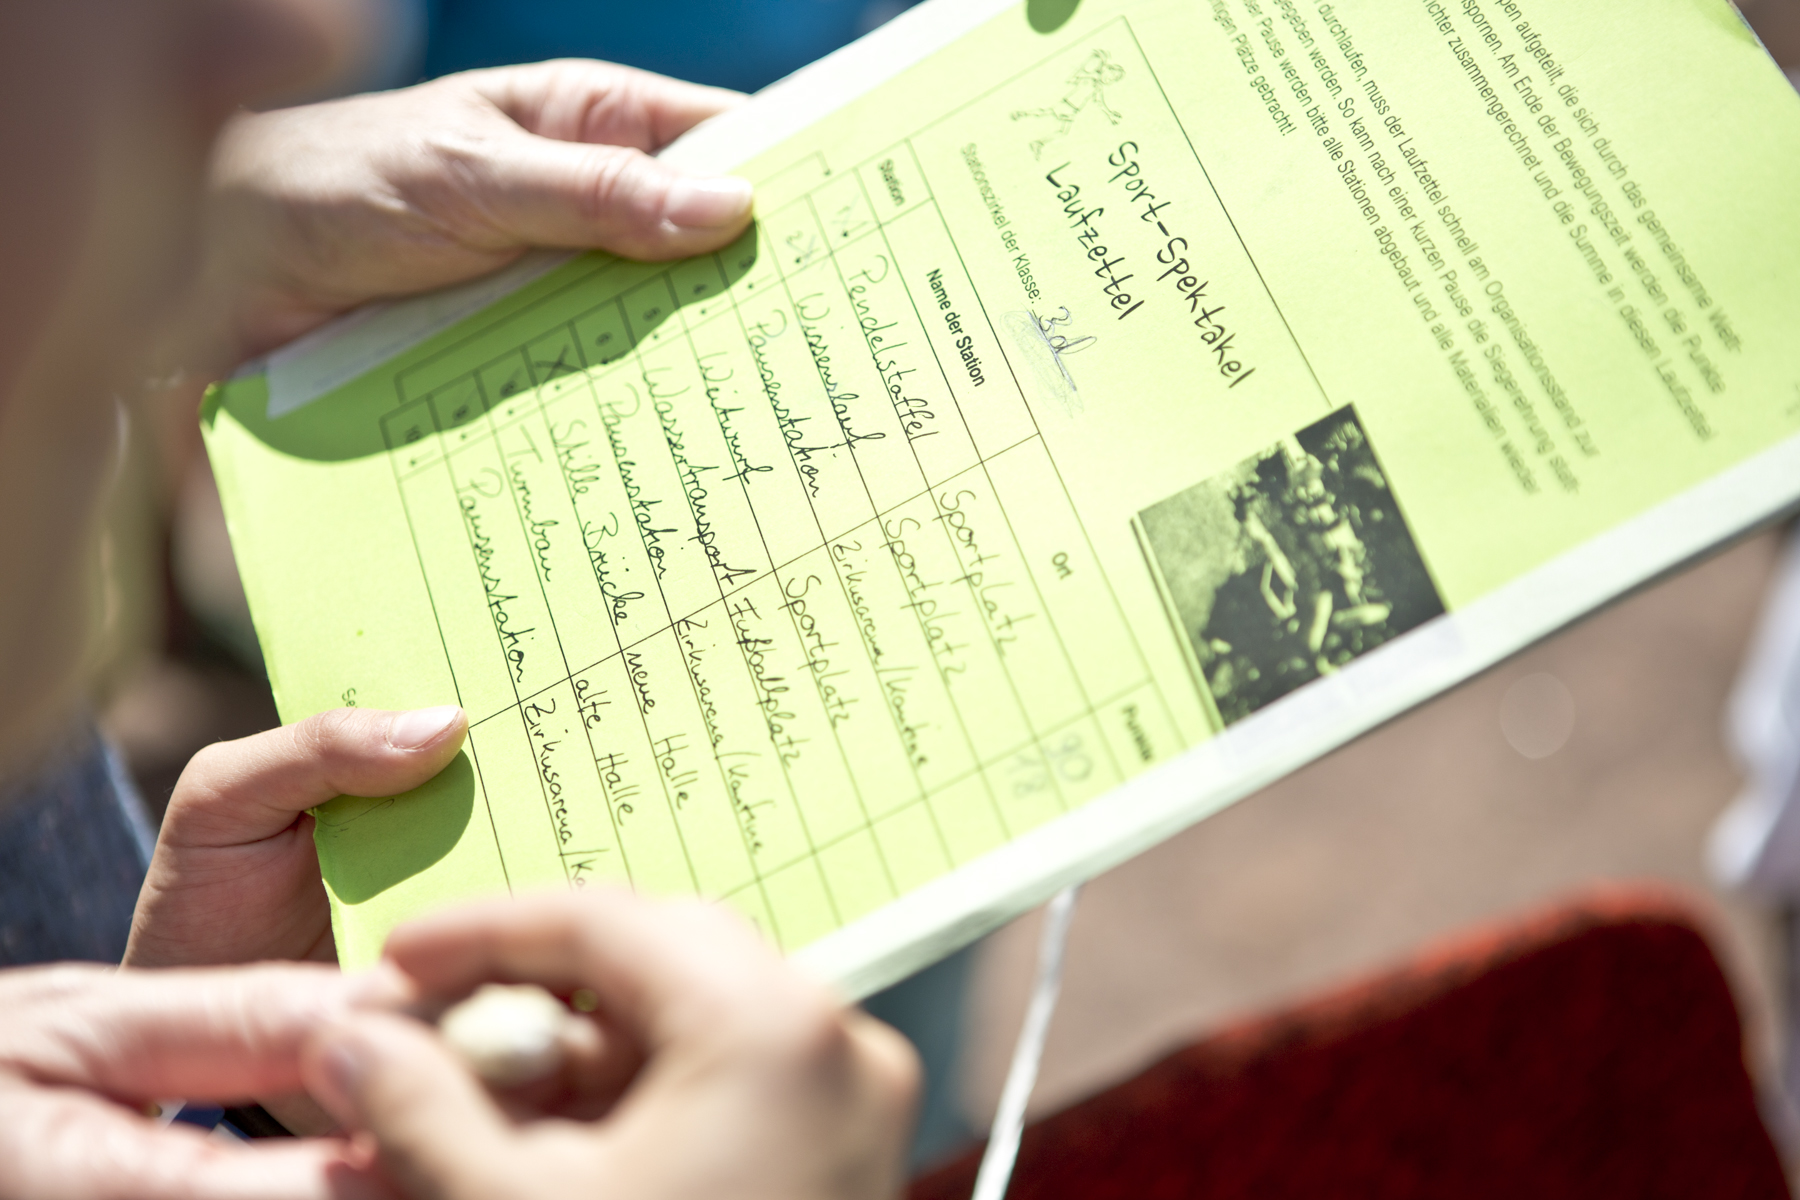 aufgeteilt, die sich durch das gemeinsame Wett-
spornen. Am Ende der Bewegungszeit werden die Punkte
zusammengerechnet und die Summe in diesen Laufzettel
durchlaufen, muss der Laufzettel schnell am Organisationsstand zur
gegeben werden. So kann nach einer kurzen Pause die Siegerehrung statt-
Pause werden bitte alle Stationen abgebaut und alle Materialien wieder
Plätze gebracht!
Sport-Spektakel
Laufzettel
Stationszirkel der Klasse: 3d
Station Name der Station Ort Punkte
1. Pendelstaffel Sportplatz 90
2. Wissenslauf Sportplatz 18
3. Pausenstation Zirkusarena/Kantine
4. Weitwurf Sportplatz
5. Wassertransport Fußballplatz
6. Pausenstation Zirkusarena/Kantine
Stille Brücke neue Halle
Turmbau alte Halle
9. Pausenstation Zirkusarena/Ka
10.
Se